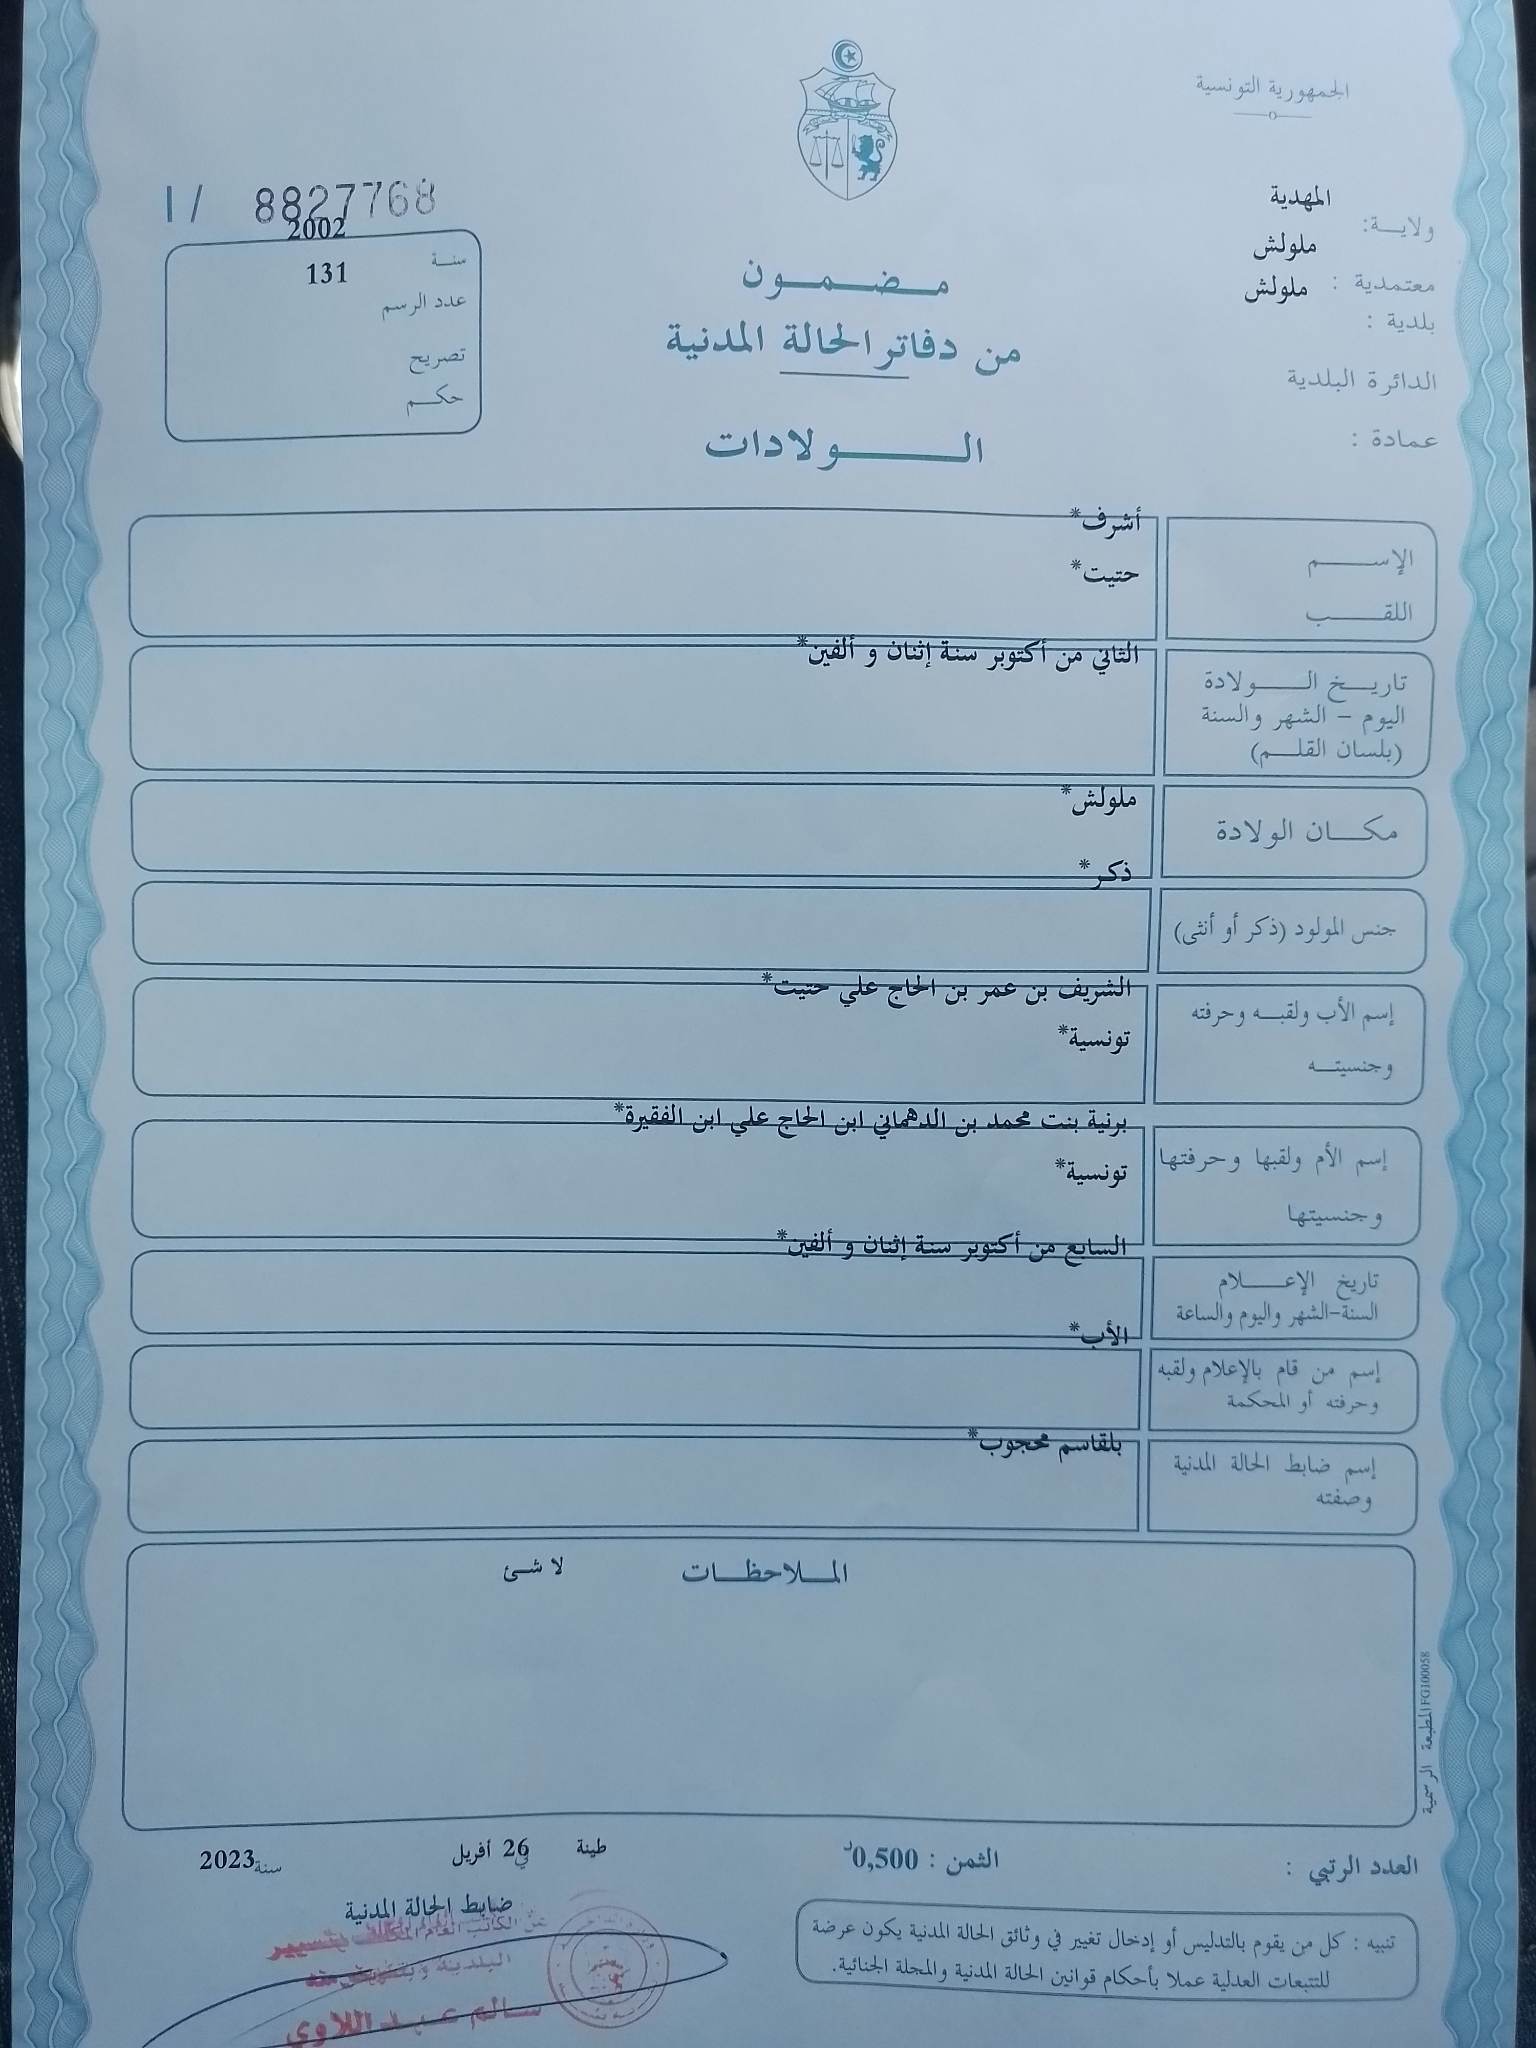 الجمهورية التونسية
I/ 8827768
ولاية: المهدية
معتمدية : ملولش
بلدية : ملولش
الدائرة البلدية
عمادة :
سنة 2002
عدد الرسم 131
تصريح
حكم
مضمون
من دفاتر الحالة المدنية
الولادات
الإسم أشرف*
اللقب حتيت*
تاريخ الولادة
اليوم - الشهر والسنة
(بلسان القلم)
الثاني من أكتوبر سنة إثنان و ألفين*
مكان الولادة ملولش*
جنس المولود (ذكر أو أنثى) ذكر*
إسم الأب ولقبه وحرفته
وجنسيته
الشريف بن عمر بن الحاج علي حتيت*
تونسية*
إسم الأم ولقبها وحرفتها
وجنسيتها
برنية بنت محمد بن الدهماني ابن الحاج علي ابن الفقيرة*
تونسية*
تاريخ الإعلام
السنة-الشهر واليوم والساعة
السابع من أكتوبر سنة إثنان و ألفين*
إسم من قام بالإعلام ولقبه
وحرفته أو المحكمة
الأب*
إسم ضابط الحالة المدنية
وصفته
بلقاسم محجوب*
الملاحظات لا شئ
المطبعة الرسمية FG100058
العدد الرتبي :
الثمن : 0,500د
طينة في 26 أفريل سنة 2023
ضابط الحالة المدنية
عن الكاتب العام المكلف بتسيير
البلدية وبتفويض منه
سالم عبد اللاوي
تنبيه : كل من يقوم بالتدليس أو إدخال تغيير في وثائق الحالة المدنية يكون عرضة
للتتبعات العدلية عملا بأحكام قوانين الحالة المدنية والمجلة الجنائية.